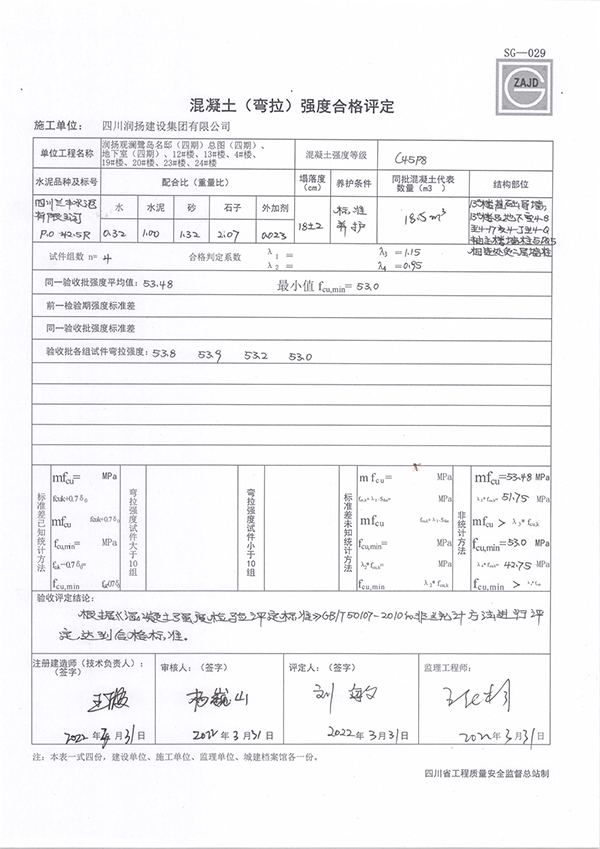 SG—029
ZAJD
混凝土（弯拉）强度合格评定
施工单位： 四川润扬建设集团有限公司
单位工程名称 润扬观澜鹭岛名邸（四期）总图（四期）、地下室（四期）、12#楼、13#楼、4#楼、19#楼、20#楼、23#楼、24#楼 混凝土强度等级 C45P8
水泥品种及标号 配合比（重量比） 塌落度（cm） 养护条件 同批混凝土代表数量（m3 ） 结构部位
水 水泥 砂 石子 外加剂
P.O 42.5R 0.32 1.00 1.32 2.07 0.023 18±2 标准养护 18.5m³
试件组数 n= 4 合格判定系数 λ1 = λ3 =1.15
λ2 = λ4 =0.95
同一验收批强度平均值：53.48 最小值 fcu,min= 53.0
前一检验期强度标准差
同一验收批强度标准差
验收批各组试件弯拉强度：53.8 53.9 53.2 53.0
标准差已知统计方法
mfcu= MPa
fcuk+0.7δ0
mfcu fcuk+0.7δ0
fcu,min= MPa
fcuk-0.7δ0=
fcu,min fcuk-0.7δ0
弯拉强度试件大于10组
弯拉强度试件小于10组
标准差未知统计方法
mfcu= MPa
MPa
mfcu
fcu,min= MPa
λ2*fcu,k= MPa
fcu,min λ2*fcu,k
非统计方法
mfcu=53.48 MPa
λ3*fcu,k= 51.75 MPa
mfcu > λ3*fcu,k
fcu,min=53.0 MPa
λ4*fcu,k= 42.75 MPa
fcu,min >
验收评定结论：
根据《混凝土强度检验评定标准》GB/T50107-2010非统计方法进行评
定达到合格标准。
注册建造师（技术负责人）：（签字） 审核人：（签字） 评定人：（签字） 监理工程师：
刘敏
2022年3月31日 2022年3月31日 2022年3月31日 2022年3月31日
注：本表一式四份，建设单位、施工单位、监理单位、城建档案馆各一份。
四川省工程质量安全监督总站制